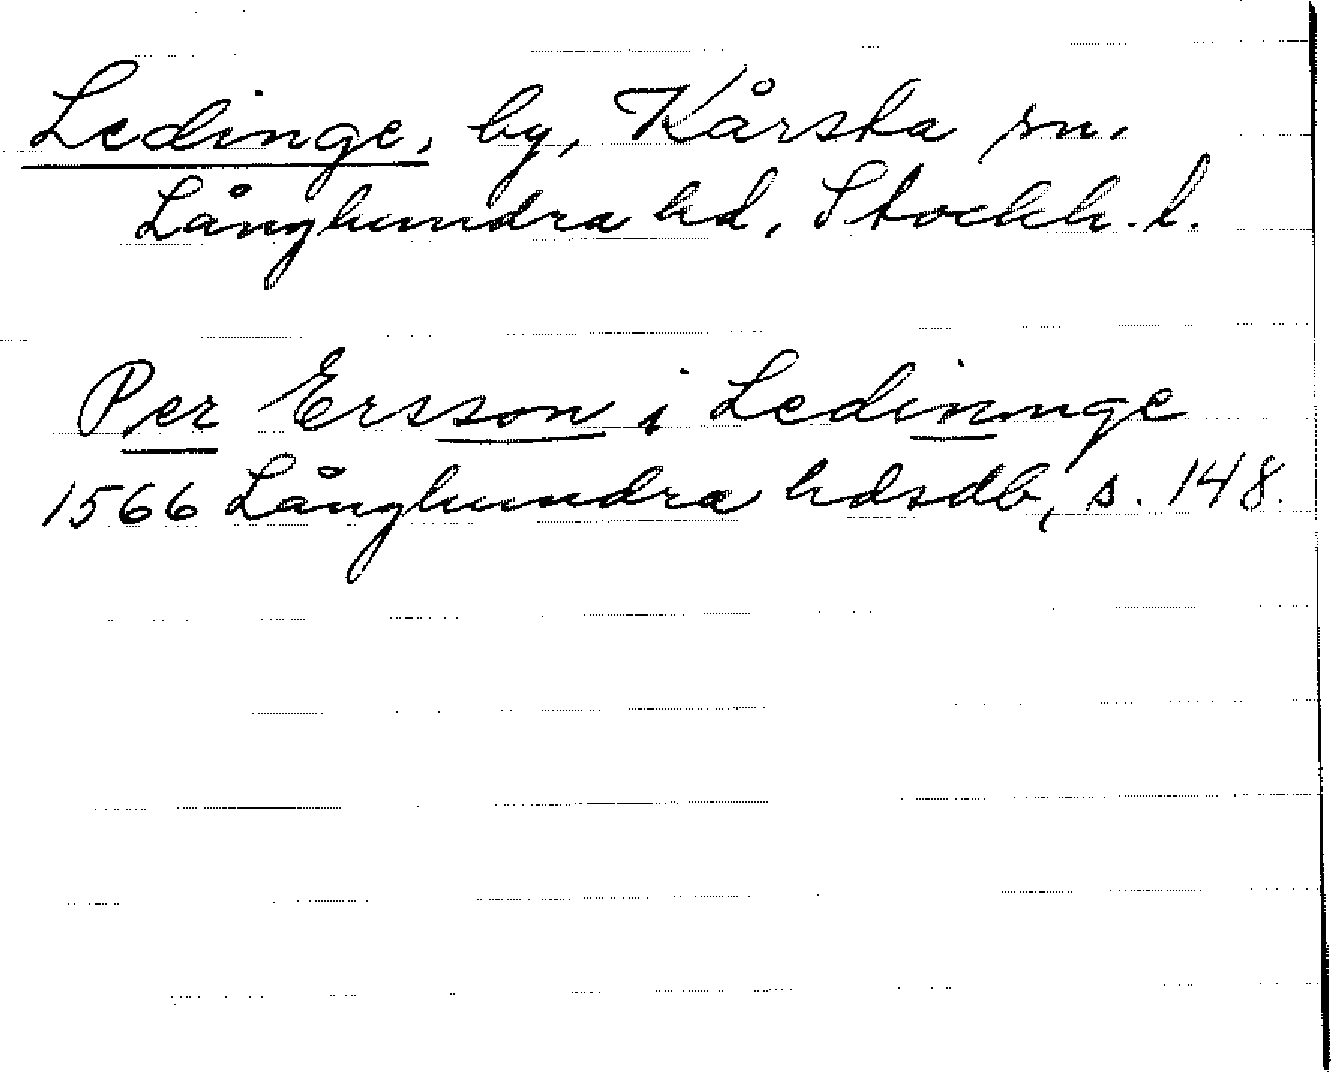 Ledinge, by, Kårsta sn.
Långhundra hd, Stockh. l.
Per Ersson i Ledininge
1566 Långhundra hdsdb, s. 148.